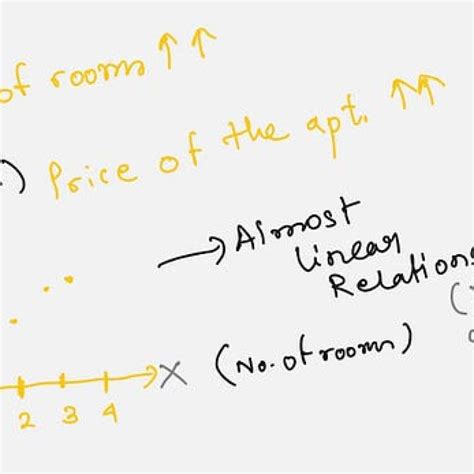 of rooms ↑ ↑
) Price of the apt. ↑↑
→ Almost
linear
Relations
X (No. of rooms)
2 3 4